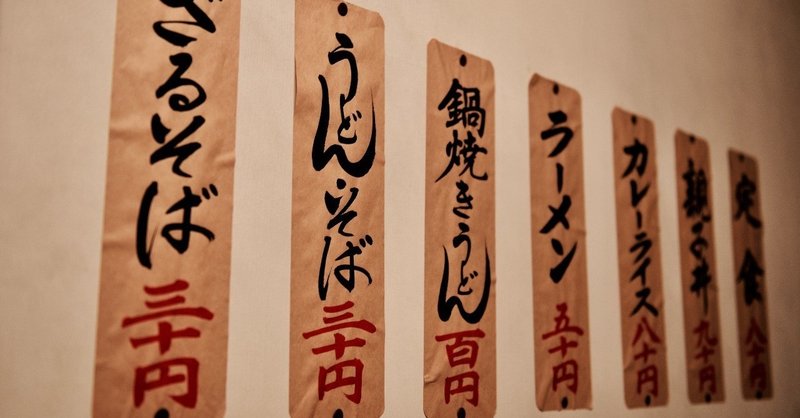 ざるそば 三十円
うどん・そば 三十円
鍋焼きうどん 百円
ラーメン 五十円
カレーライス 八十円
親子丼 九十円
定食 八十円